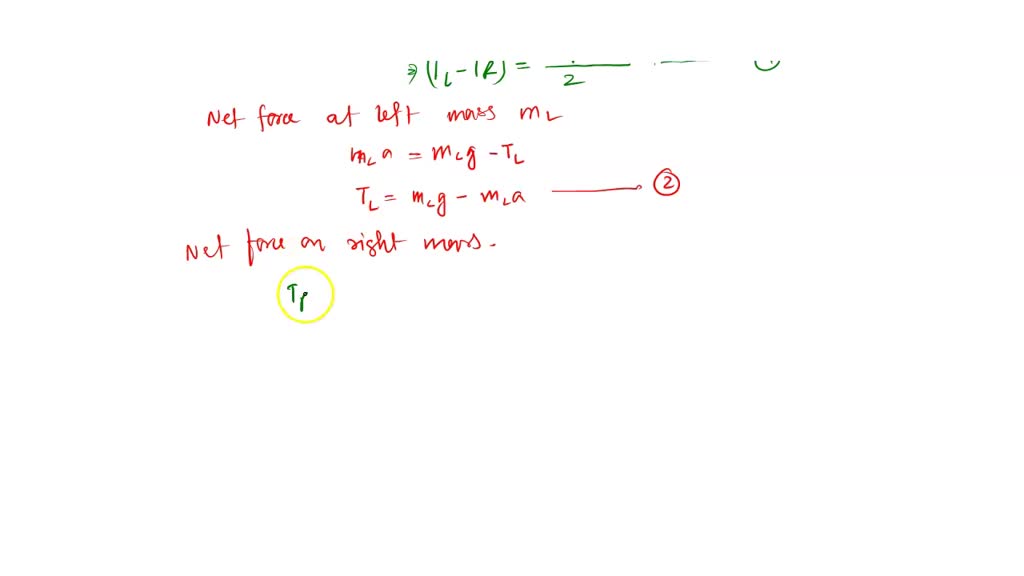 ⇒ (TL - TR) = 2
Net force at left mass mL
mL a = mL g - TL
TL = mL g - mL a ——— ②
Net force on right mass.
T